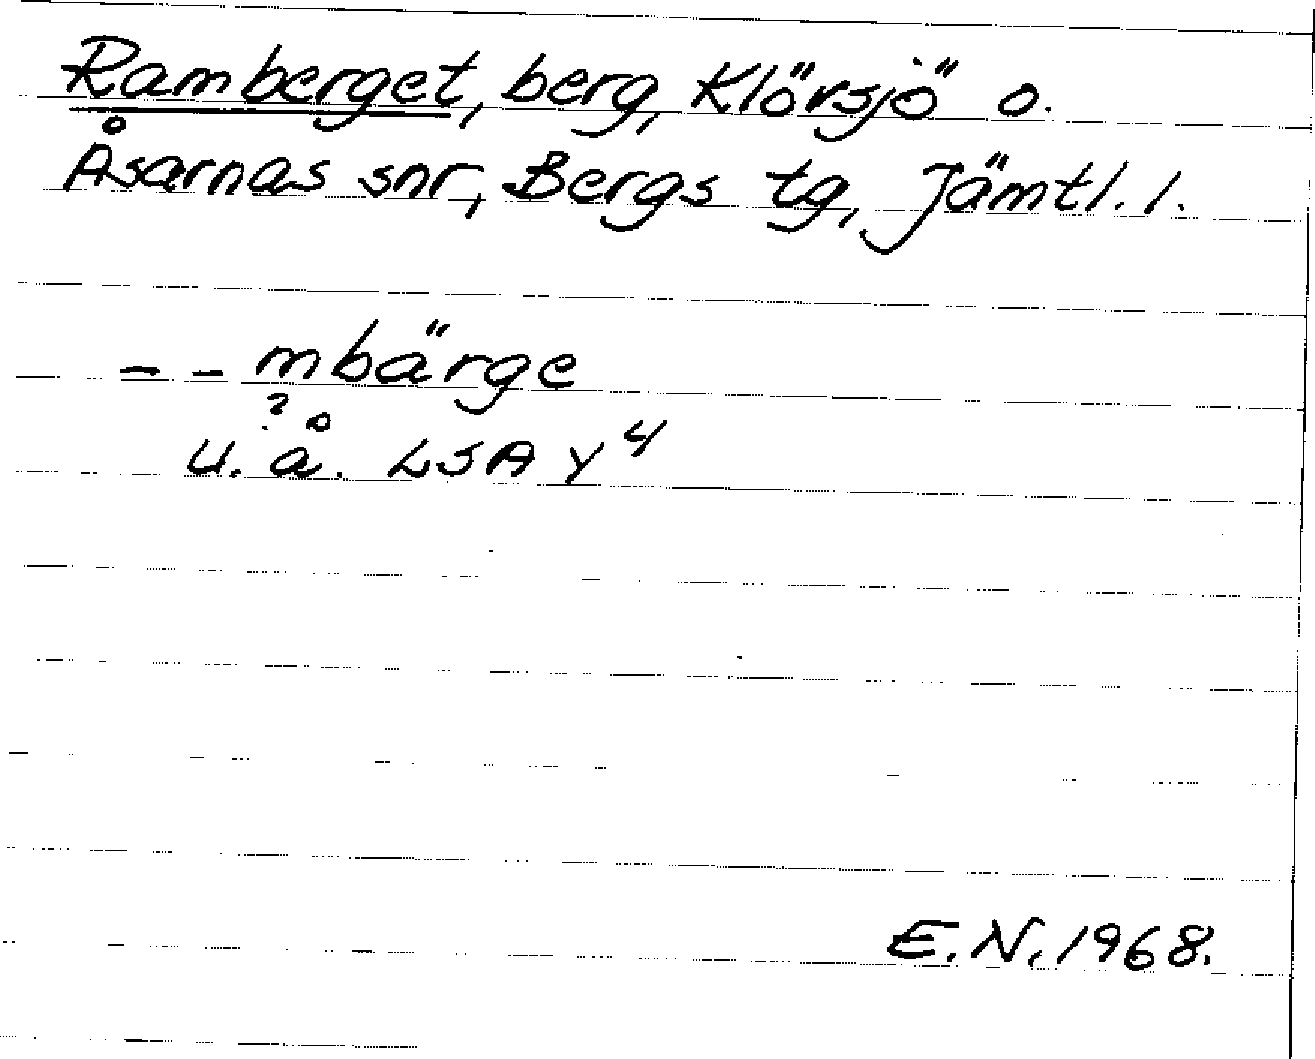 Ramberget, berg, Klörsjö o.
Åsarnas snr, Bergs tg, Jämtl. l.
- - mbärge
?
u. å. LSA y 4
E.N. 1968.